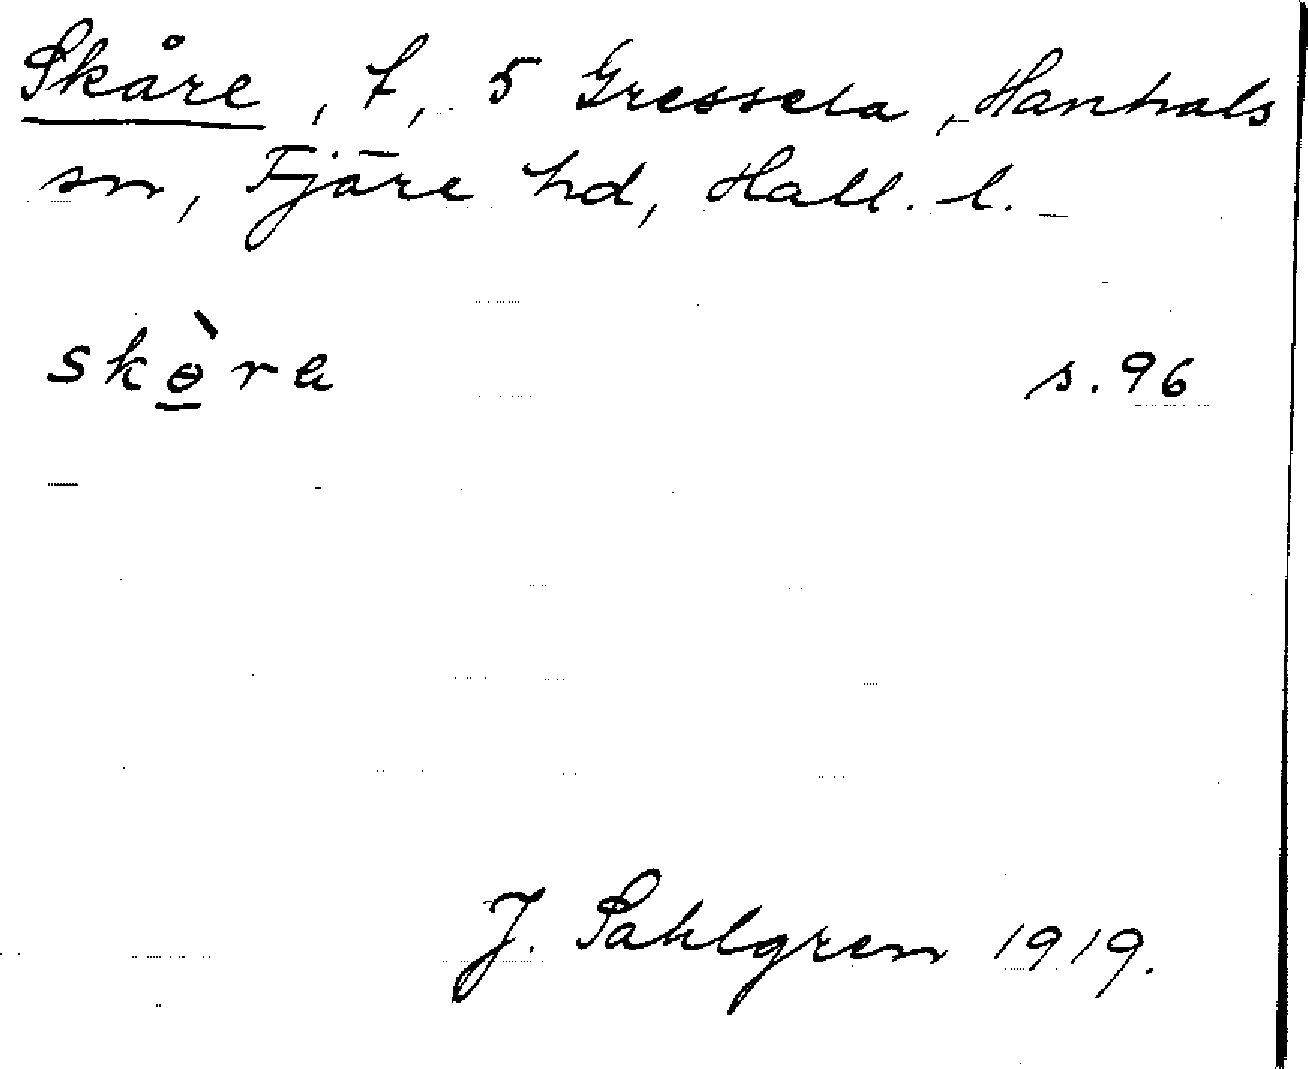 Skåre, t, 5 Gressela, Hanhals
sn, Fjäre hd, Hall. l.
skɵ̀ra s. 96
J. Sahlgren 1919.